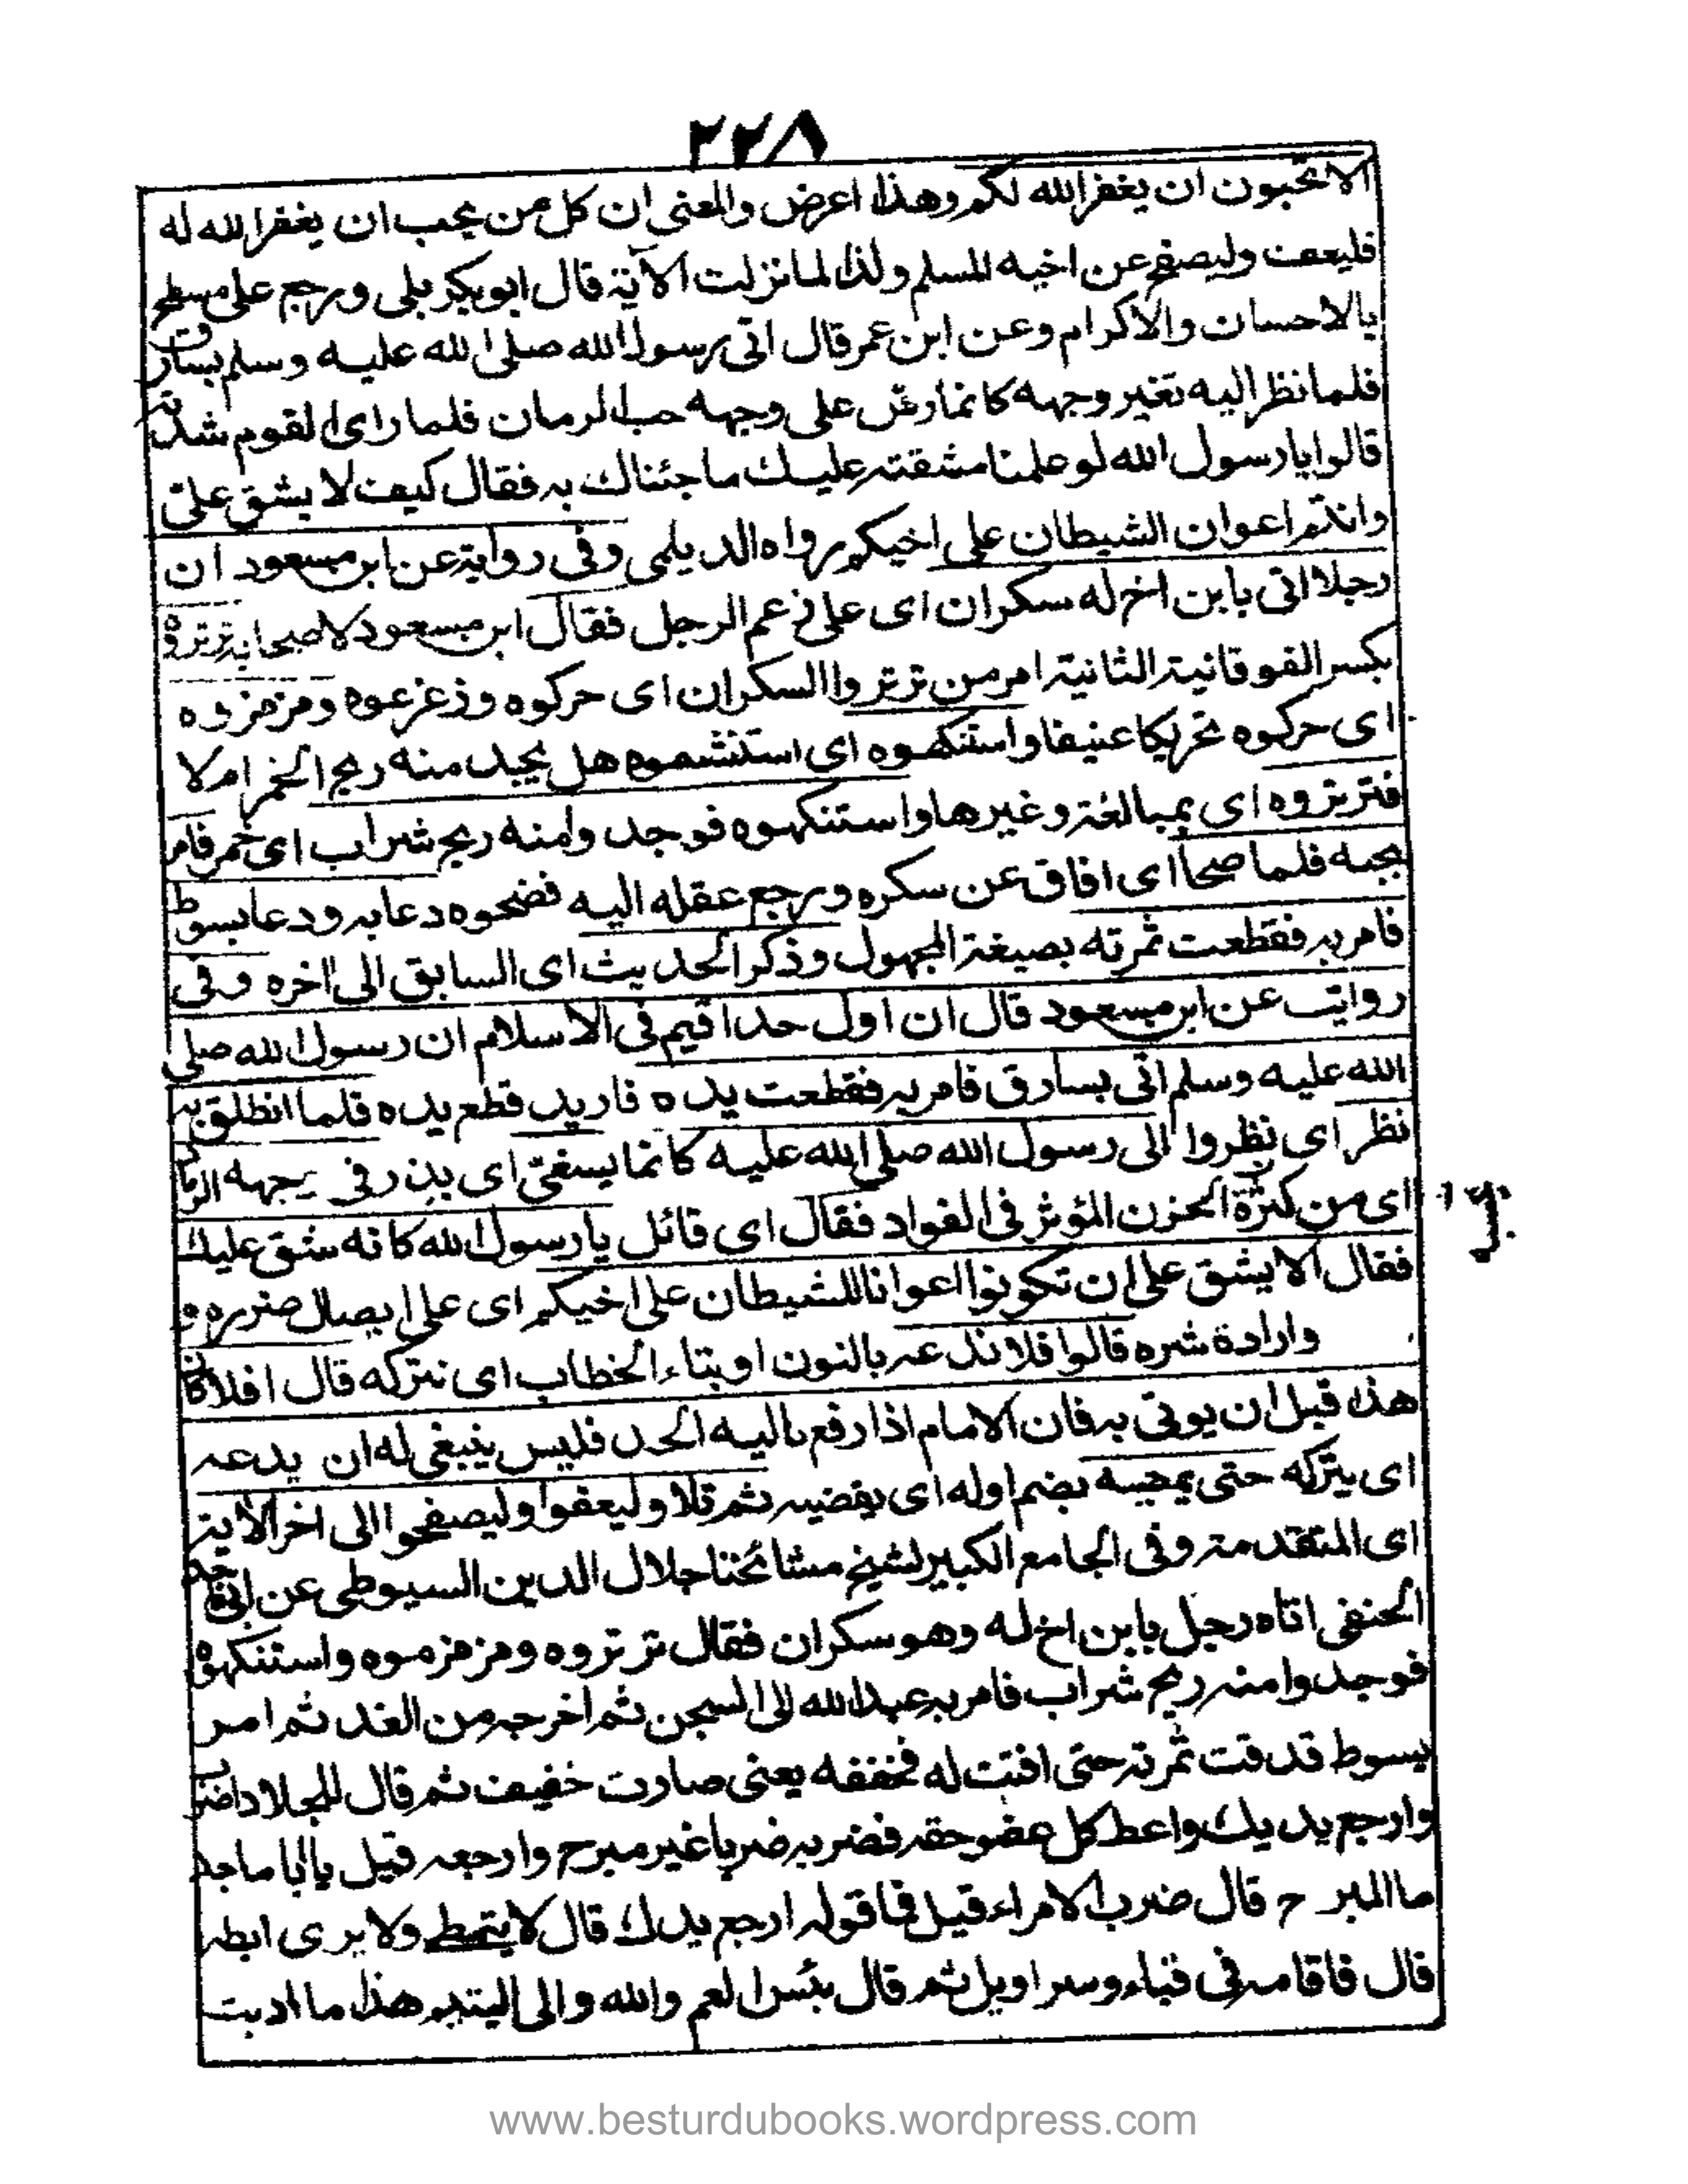 ٢٢٨
الا تحبون ان يغفر الله لكم وهذا اعرض والمعنى ان كل من يحب ان يغفر الله له
فليعف وليصفح عن اخيه المسلم ولذا لما نزلت الآية قال ابو بكر بلى ورجع على مسطح
بالاحسان والاكرام وعن ابن عمر قال اتى رسول الله صلى الله عليه وسلم بسارق
فلما نظر اليه تغير وجهه كانما رش على وجهه حب الرمان فلما راى القوم شدته
قالوا يا رسول الله لو علمنا مشقته عليك ما جئناك به فقال كيف لا يشق على
وانتم اعوان الشيطان على اخيكم رواه الديلمى وفى رواية عن ابن مسعود ان
رجلا اتى بابن اخ له سكران اى على زعم الرجل فقال ابن مسعود لاصحابه ترتروه
بكسر الفوقانية الثانية امر من ترتروا السكران اى حركوه وزعزعوه ومزمزوه
اى حركوه تحريكا عنيفا واستنكهوه اى استنشموه هل يجد منه ريح الخمر ام لا
فترتروه اى بمبالغة وغيرها واستنكهوه فوجدوا منه ريح شراب اى خمر فامر
بحبسه فلما صحا اى افاق عن سكره ورجع عقله اليه فضحوه دعا به ودعا بسوط
فامر به فقطعت ثمرته بصيغة المجهول وذكر الحديث اى السابق الى اخره وفى
رواية عن ابن مسعود قال ان اول حد اقيم فى الاسلام ان رسول الله صلى
الله عليه وسلم اتى بسارق فامر به فقطعت يده فاريد قطع يده فلما انطلق به
نظر اى نظروا الى رسول الله صلى الله عليه كانما يسفى اى يذر فى وجهه الرماد
اى من كثرة الحزن المؤثر فى الفواد فقال اى قائل يا رسول الله كانه شق عليك
فقال الا يشق على ان تكونوا اعوانا للشيطان على اخيكم اى على ايصال ضرره و
وارادة شره قالوا فلا ندعه بالنون او بتاء الخطاب اى نتركه قال افلا كان
هذا قبل ان يوتى به فان الامام اذا رفع اليه الحد فليس ينبغى له ان يدعه
اى يتركه حتى يمضيه بضم اوله اى يقضيه ثم تلا وليعفوا وليصفحوا الى اخر الآية
اى المتقدمة وفى الجامع الكبير لشيخ مشائخنا جلال الدين السيوطى عن ابى ماجد
الحنفى اتاه رجل بابن اخ له وهو سكران فقال ترتروه ومزمزموه واستنكهوه
فوجدوا منه ريح شراب فامر به عبد الله الى السجن ثم اخرجه من الغد ثم امر
بسوط قدقت ثمرته حتى افنت له فخففه يعنى صارت خفيف ثم قال للجلاد اضرب
وارجع يديك واعط كل عضو حقه فضربه ضربا غير مبرح وارجعه قيل يا ابا ماجد
ما المبرح قال ضرب الامراء قيل فما قوله ارجع يدك قال لا يتمطى ولا يرى ابطه
قال فاقامه فى قباء وسراويل ثم قال بئس العم والله والى اليتيم هذا ما ادبت
www.besturdubooks.wordpress.com